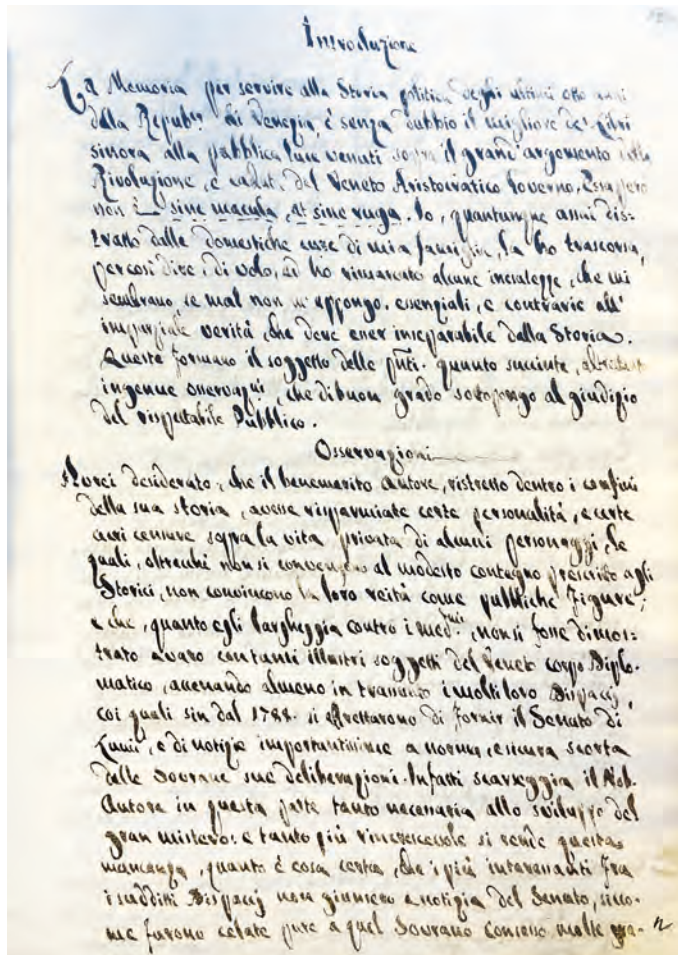 Introduzione
La Memoria per servire alla Storia politica degli ultimi otto anni
della Repub.ca di Venezia, è senza dubbio il migliore de' Libri
sinora alla pubblica luce venuti sopra il grand'argomento della
Rivoluzione, e caduta del Veneto Aristocratico Governo. Essa però
non è sine macula, et sine ruga. Io, quantunque assai dis=
tratto dalle domestiche cure di mia famiglia, la ho trascorsa,
per così dire, di volo, ed ho rimarcato alcune inesatezze, che mi
sembrano, se mal non m'appongo, essenziali, e contrarie all'
imparziale verità, che deve esser inseparabile dalla Storia.
Queste formano il soggetto delle pnti. quanto succinte, altretanto
ingenue osservazni, che di buon grado sottopongo al giudizio
del rispettabile Pubblico.
Osservazioni
Avrei desiderato, che il benemerito Autore, ristretto dentro i confini
della sua storia, avesse risparmiate certe personalità, e certe
acri censure sopra la vita privata di alcuni personaggi, le
quali, oltrechè non si convengono al modesto contegno prescritto agli
Storici, non convincono la loro reità come pubbliche Figure;
e che, quanto egli largheggia contro i med.mi, non si fosse dimos=
trato avaro con tanti illustri soggetti del Veneto corpo Diplo-
matico, accennando almeno in transunto i molti loro Dispacj,
coi quali sin dal 1788. si affrettarono di fornir il Senato di
Lumi, e di notizie importantissime a norma, e sicura scorta
delle Sovrane sue deliberazioni. Infatti scarseggia il Nob.
Autore in questa parte tanto necessaria allo sviluppo del
gran mistero: e tanto più rincrescevole si rende questa
mancanza, quanto è cosa certa, che i più interessanti fra
i suddetti Dispacj non giunsero a notizia del Senato, sicco-
me furono celate pure a quel Sovrano Consesso molte gra-